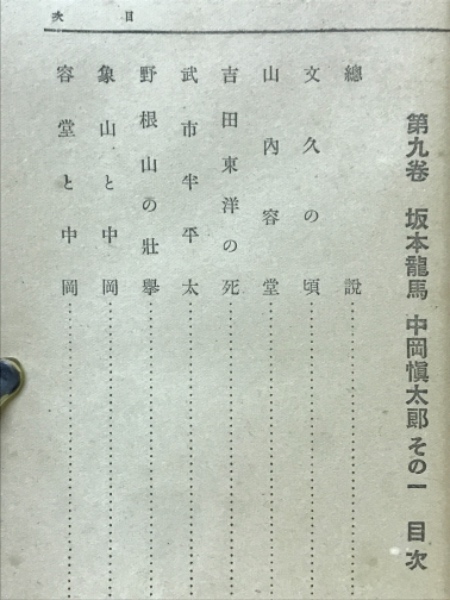 目次
第九巻 坂本龍馬 中岡愼太郎 その一 目次
總說
文久の頃
山內容堂
吉田東洋の死
武市半平太
野根山の壯擧
象山と中岡
容堂と中岡